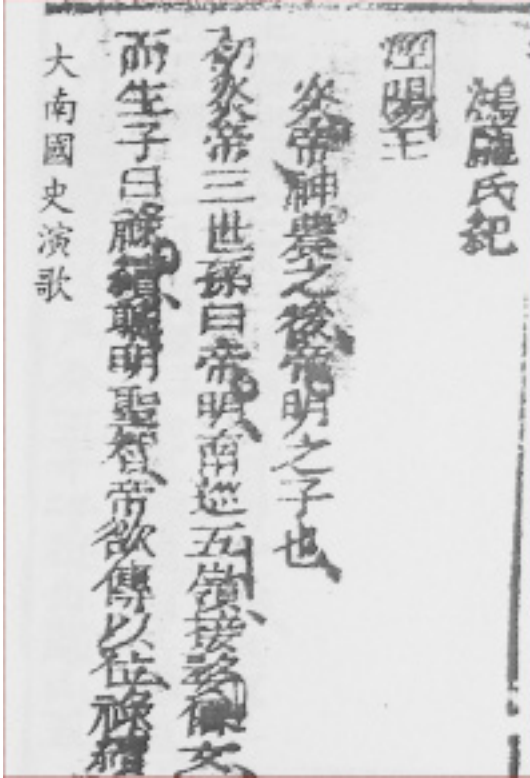 鴻龐氏紀
涇陽王
炎帝神農之後帝明之子也
初炎帝三世孫曰帝明南巡五嶺接婺僊女
而生子曰祿續聰明聖智帝欲傳以位祿續
大南國史演歌